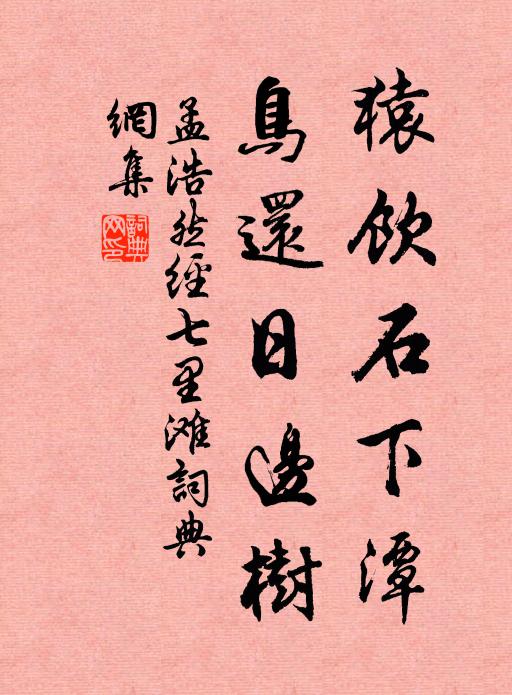 猿飲石下潭
鳥還日邊樹
孟浩然經七里滩詞典
網集
詞典網印